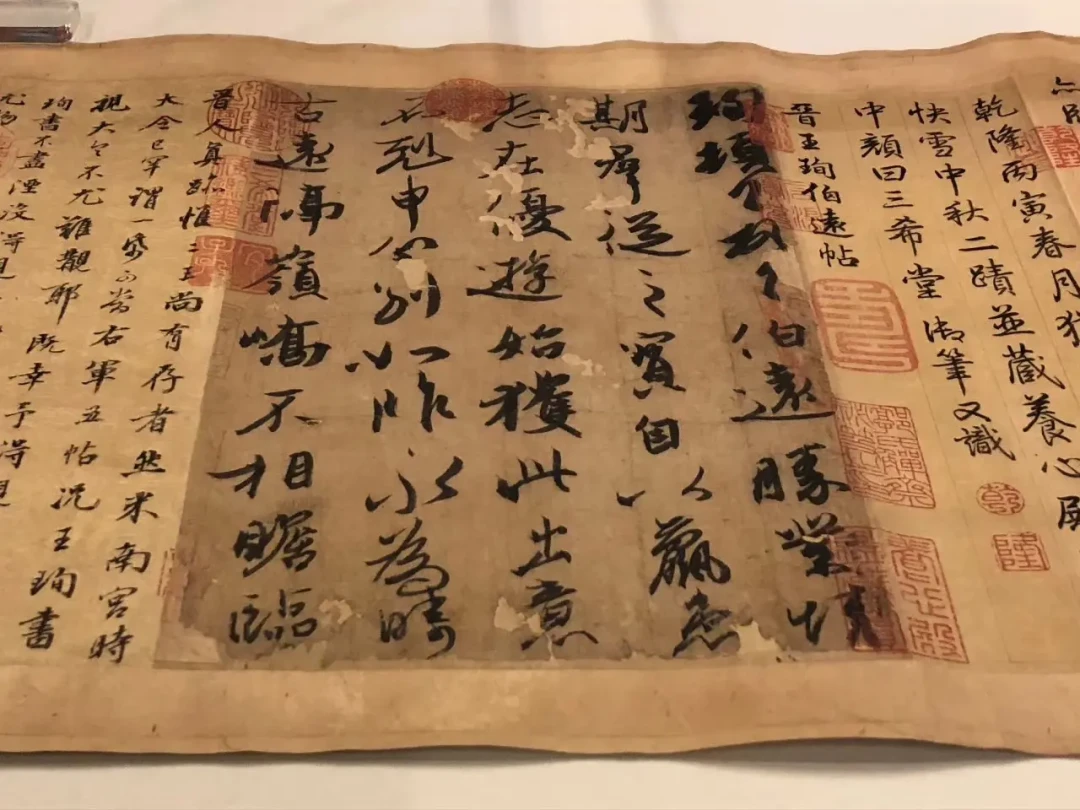 乾隆丙寅春月
快雪中秋二蹟並藏養心
中顏曰三希堂御筆又識
乾
隆
晉王珣伯遠帖
珣頓首頓首伯遠勝業情
期群從之寶自以羸患
志在優遊始獲此出意
不剋申分別如昨永為疇
古遠隔嶺嶠不相瞻臨
晉人真跡惟二王尚有存者然米南宮時
大令已罕謂一紙可當右軍五帖況王珣書
視大令不尤難覯耶既幸予得見
珣書不盡湮沒得見
尤物